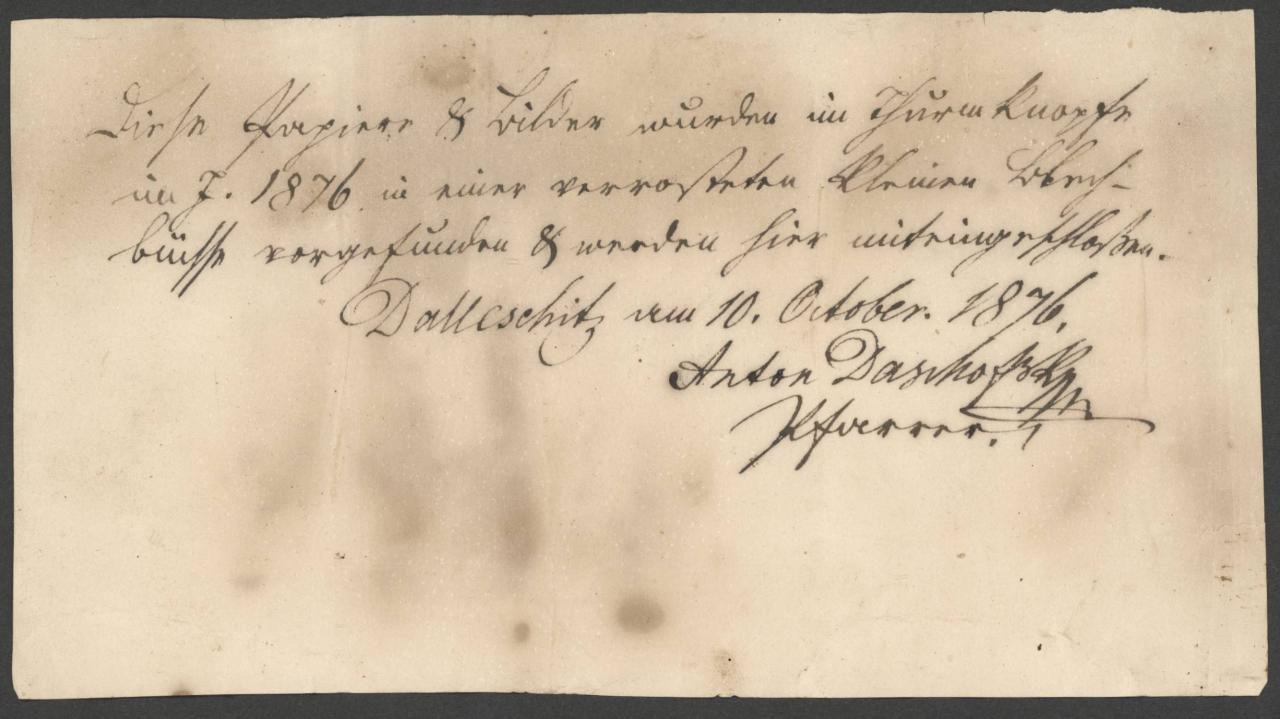 Diese Papiere & Bilder wurden im Thurmknopfe
im J. 1876 in einer verrosteten kleinen Blech-
büchse vorgefunden & werden hier miteingeschloßen.
Dalleschitz am 10. October. 1876.
Anton
Pfarrer.